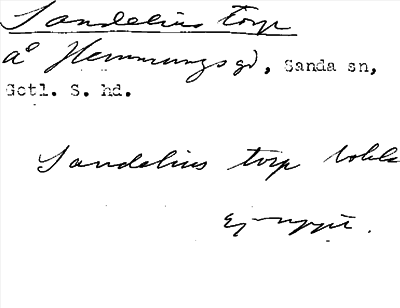 Sandelius torp
å Hemmungs gd, Sanda sn,
Gotl. S. hd.
Sandelius torp
Ej nytt.